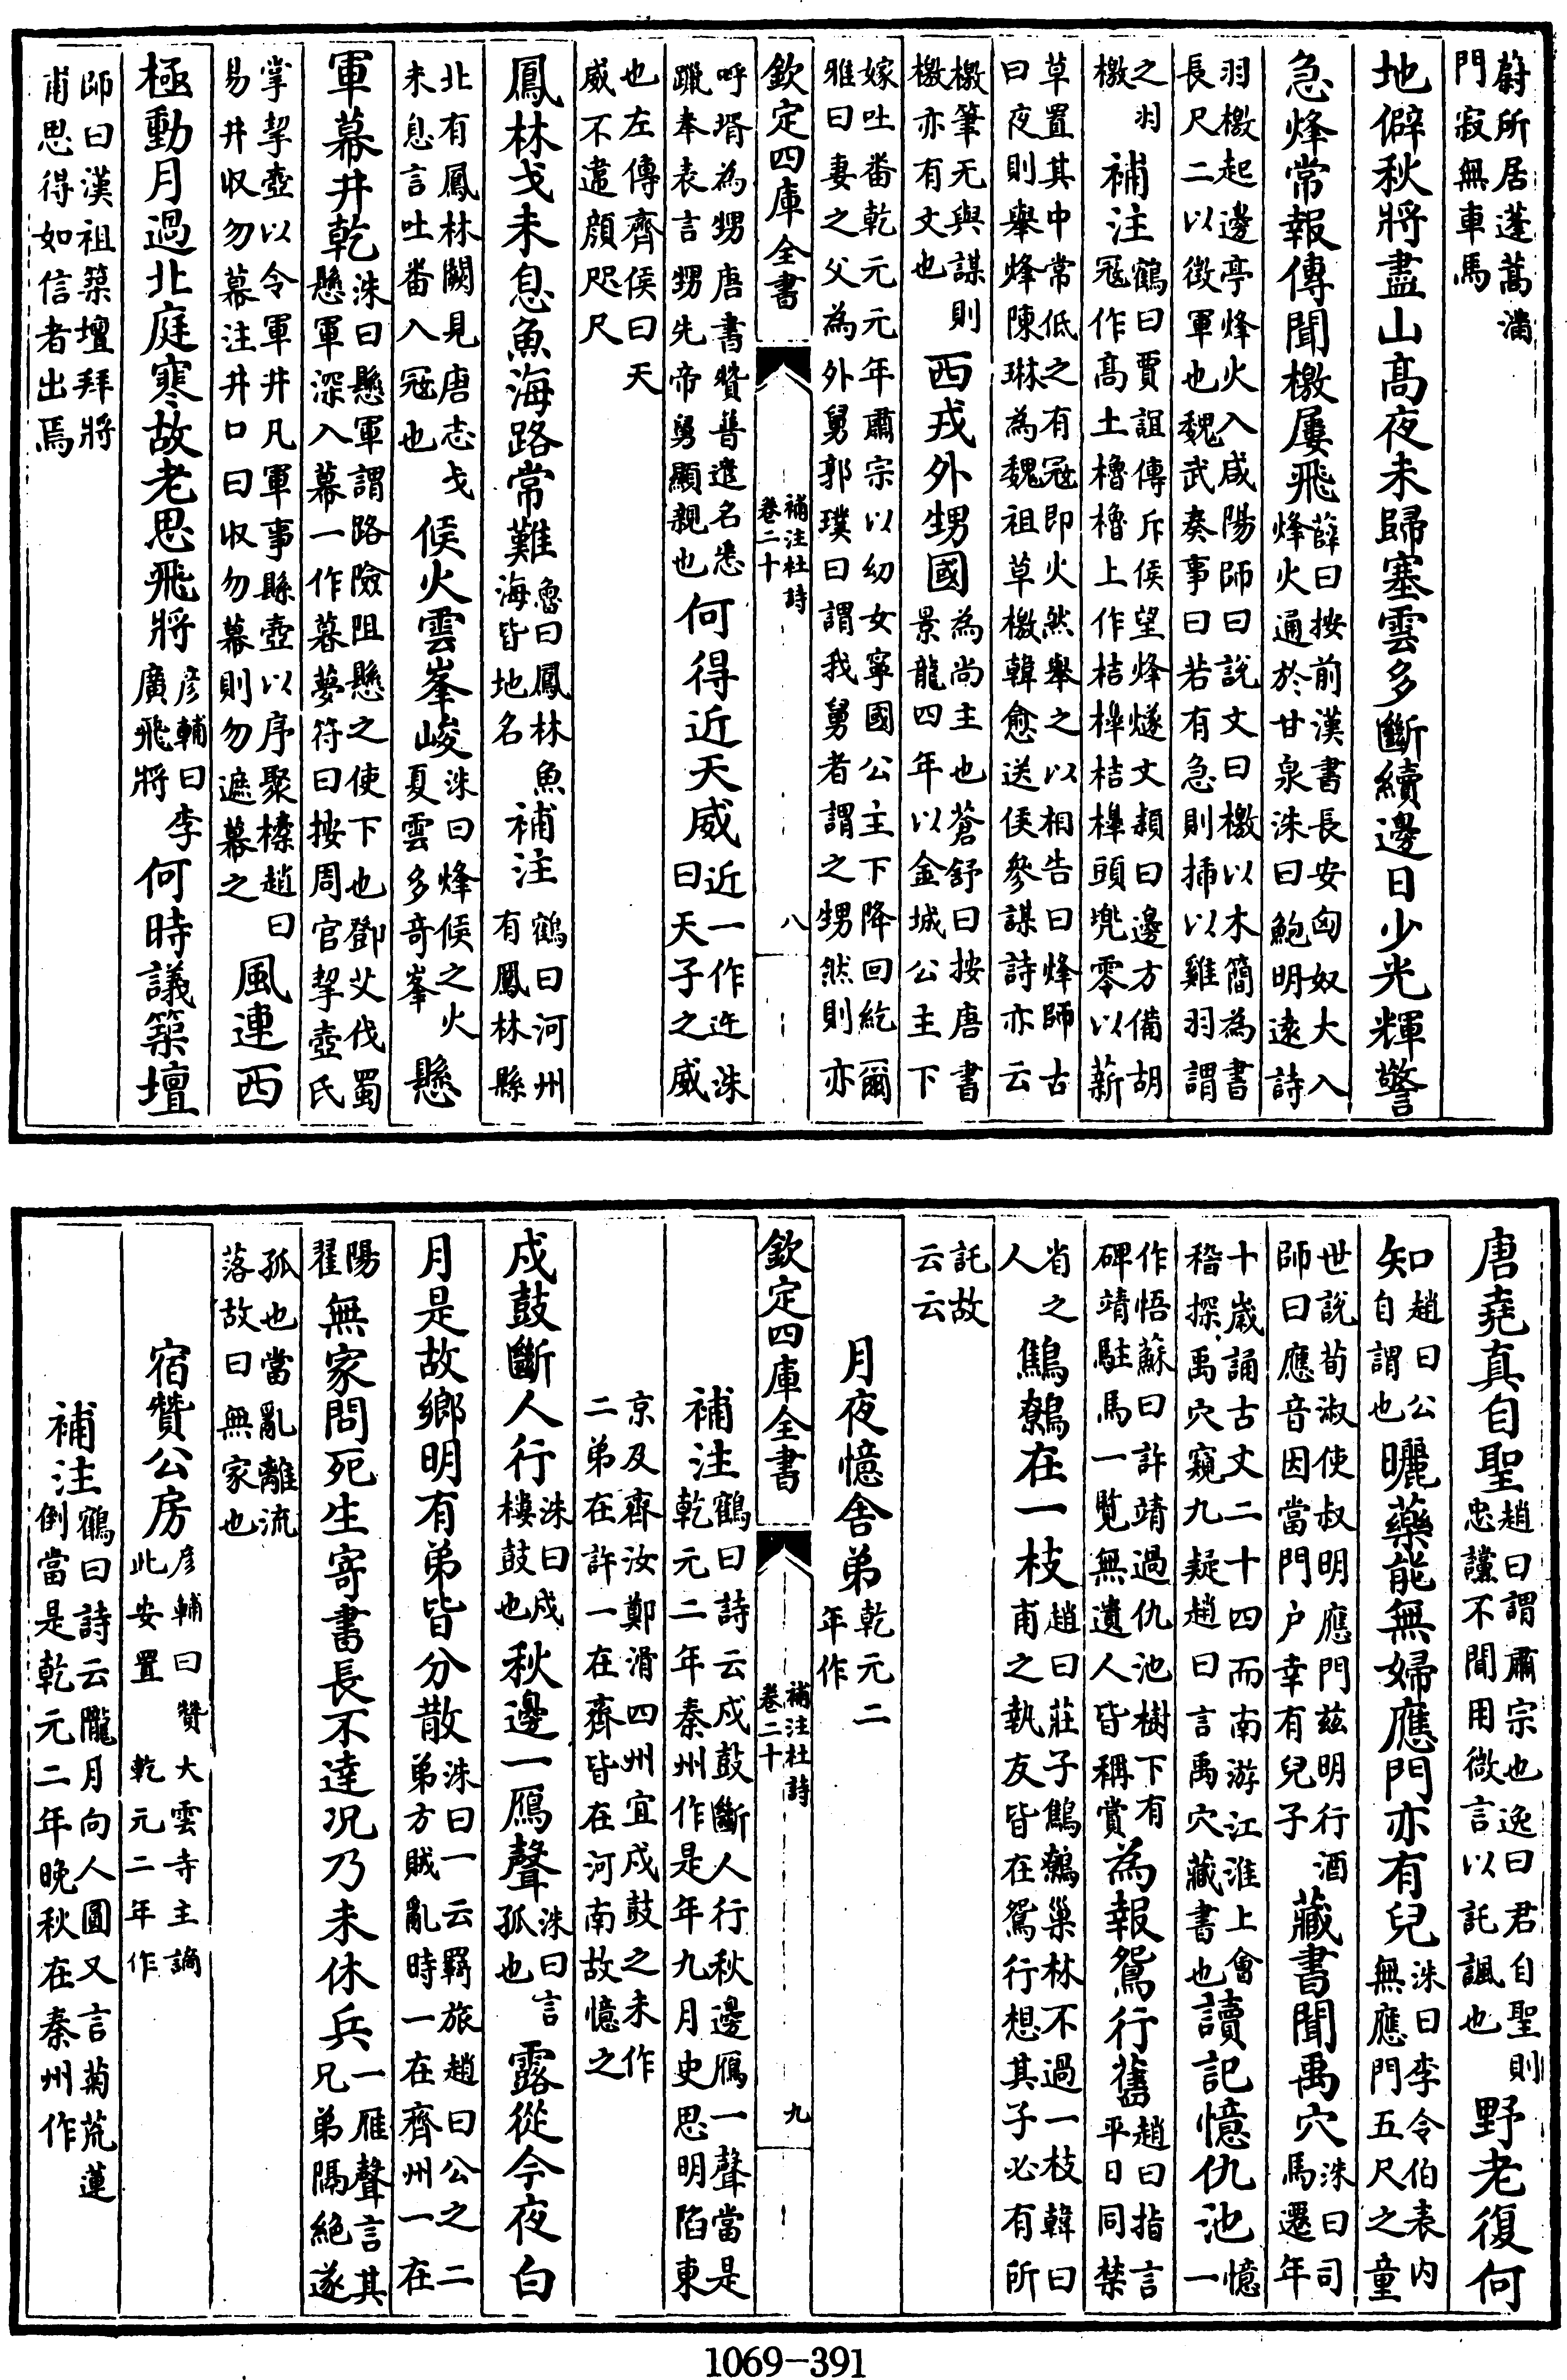 蔚所居蓬蒿滿
門寂無車馬
地僻秋將盡山高夜未歸塞雲多斷續邊日少光輝警
急烽常報傳聞檄屢飛薛曰按前漢書長安匈奴大入烽火通於甘泉洙曰鮑明遠詩
羽檄起邊亭烽火入咸陽師曰說文曰檄以木簡為書
長尺二以徴軍也魏武奏事曰若有急則揷以雞羽謂
之羽檄補注鶴曰賈誼傳斥候望烽燧文頴曰邊方備胡冦作高土櫓櫓上作桔橰桔橰頭兜零以薪
草置其中常低之有冦即火然舉之以相告曰烽師古
曰夜則舉烽陳琳為魏祖草檄韓愈送侯參謀詩亦云
檄筆无與謀則檄亦有文也西戎外甥國為尚主也蒼舒曰按唐書景龍四年以金城公主下
嫁吐番乾元元年肅宗以幼女寧國公主下降回紇爾
雅曰妻之父為外舅郭璞曰謂我舅者謂之甥然則亦
欽定四庫全書
補注杜詩
卷二十
八
呼壻為甥唐書贊普遣名悉躐奉表言甥先帝舅顯親也何得近天威近一作迕洙曰天子之威
也左傳齊侯曰天
威不違顔咫尺
鳳林戈未息魚海路常難魯曰鳳林魚海皆地名補注鶴曰河州有鳳林縣
北有鳳林關見唐志戈未息言吐番入冦也候火雲峯峻洙曰烽候之火夏雲多奇峯懸
軍幕井乾洙曰懸軍謂路險阻懸之使下也鄧艾伐蜀懸軍深入幕一作暮夢符曰按周官挈壺氏
掌挈壺以令軍井凡軍事縣壺以序聚㯓趙曰易井収勿幕注井口曰収勿幕則勿遮幕之風連西
極動月過北庭寒故老思飛將彥輔曰李廣飛將何時議築壇
師曰漢祖築壇拜將
甫思得如信者出焉
唐堯真自聖趙曰謂肅宗也逸曰君自聖則忠讜不聞用微言以託諷也野老復何
知趙曰公自謂也曬藥能無婦應門亦有兒洙曰李令伯表內無應門五尺之童
世說荀淑使叔明應門玆明行酒師曰應音因當門户幸有兒子藏書聞禹穴洙曰司馬遷年
十歲誦古文二十四而南游江淮上會稽探禹穴窺九疑趙曰言禹穴藏書也讀記憶仇池憶一
作悟蘇曰許靖過仇池樹下有碑靖駐馬一覧無遺人皆稱賞為報鴛行舊趙曰指言平日同禁
省之人鷦鷯在一枝趙曰莊子鷦鷯巢林不過一枝韓曰甫之執友皆在鴛行想其子必有所
託故
云云
月夜憶舍弟乾元二年作
欽定四庫全書
補注杜詩
卷二十
九
補注鶴曰詩云戍鼓斷人行秋邊鴈一聲當是乾元二年秦州作是年九月史思明陷東
京及齊汝鄭滑四州宜戍鼓之未作
二弟在許一在齊皆在河南故憶之
戍鼓斷人行洙曰戍樓鼓也秋邊一鴈聲洙曰言孤也露從今夜白
月是故鄉明有弟皆分散洙曰一云羇旅趙曰公之二弟方賊亂時一在齊州一在
陽翟無家問死生寄書長不逹况乃未休兵一雁聲言其兄弟隔絶遂
孤也當亂離流
落故曰無家也
宿贊公房彥輔曰贊大雲寺主謫此安置乾元二年作
補注鶴曰詩云隴月向人圓又言菊荒蓮倒當是乾元二年晚秋在秦州作
1069-391